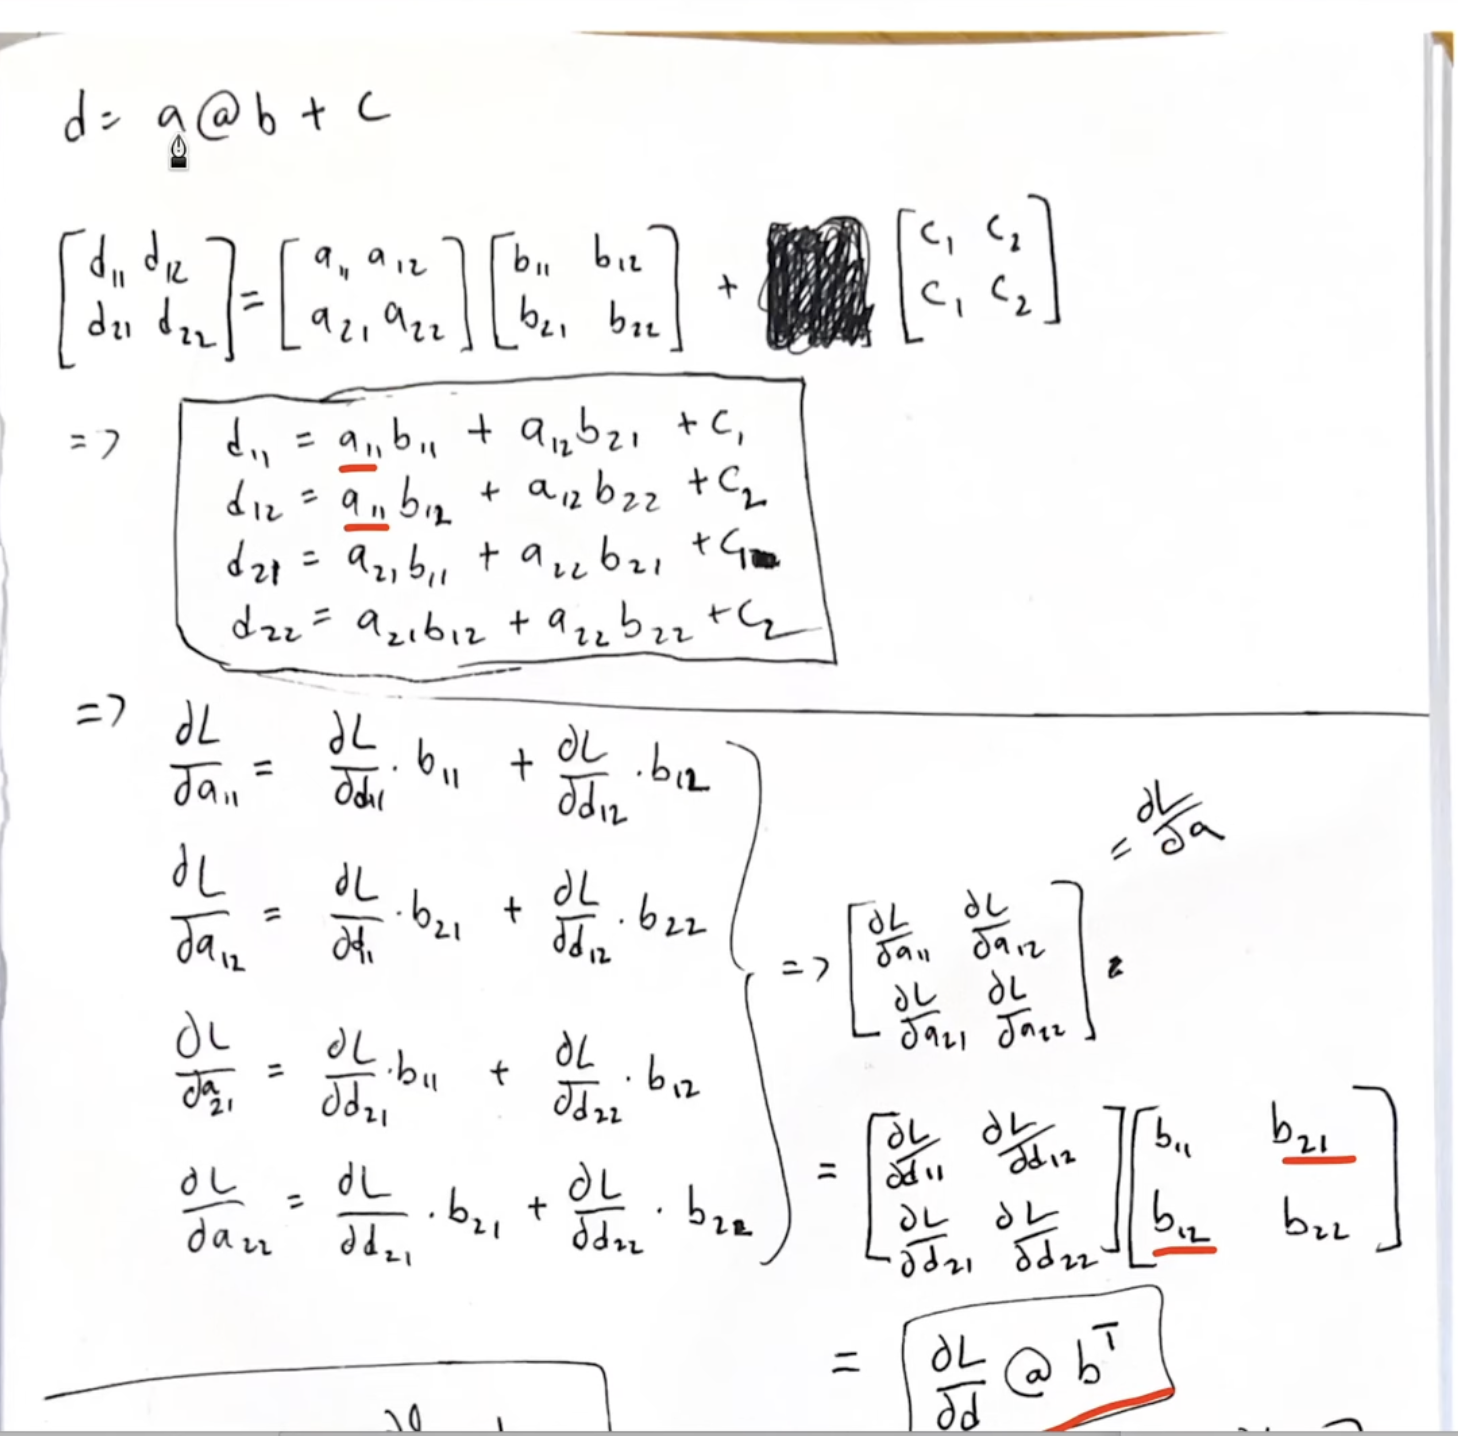 d = a @ b + c
[d₁₁ d₁₂; d₂₁ d₂₂] = [a₁₁ a₁₂; a₂₁ a₂₂] [b₁₁ b₁₂; b₂₁ b₂₂] + [c₁ c₂; c₁ c₂]
=> d₁₁ = a₁₁b₁₁ + a₁₂b₂₁ + c₁
d₁₂ = a₁₁b₁₂ + a₁₂b₂₂ + c₂
d₂₁ = a₂₁b₁₁ + a₂₂b₂₁ + c₁
d₂₂ = a₂₁b₁₂ + a₂₂b₂₂ + c₂
=> ∂L/∂a₁₁ = ∂L/∂d₁₁ · b₁₁ + ∂L/∂d₁₂ · b₁₂
∂L/∂a₁₂ = ∂L/∂d₁₁ · b₂₁ + ∂L/∂d₁₂ · b₂₂
∂L/∂a₂₁ = ∂L/∂d₂₁ · b₁₁ + ∂L/∂d₂₂ · b₁₂
∂L/∂a₂₂ = ∂L/∂d₂₁ · b₂₁ + ∂L/∂d₂₂ · b₂₂
= ∂L/∂a
=> [∂L/∂a₁₁ ∂L/∂a₁₂; ∂L/∂a₂₁ ∂L/∂a₂₂]
= [∂L/∂d₁₁ ∂L/∂d₁₂; ∂L/∂d₂₁ ∂L/∂d₂₂] [b₁₁ b₂₁; b₁₂ b₂₂]
= ∂L/∂d @ bᵀ